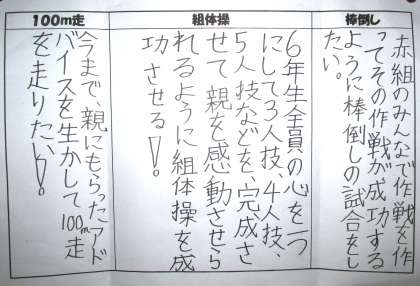 棒倒し
赤組のみんなで作戦を作
ってその作戦が成功する
ように棒倒しの試合をし
たい。
組体操
6年生全員の心を一つ
にして3人技、4人技、
5人技などを、完成さ
せて親を感動させら
れるように組体操を成
功させる!。
100m走
今まで、親にもらったアド
バイスを生かして100m走
を走りたい!。